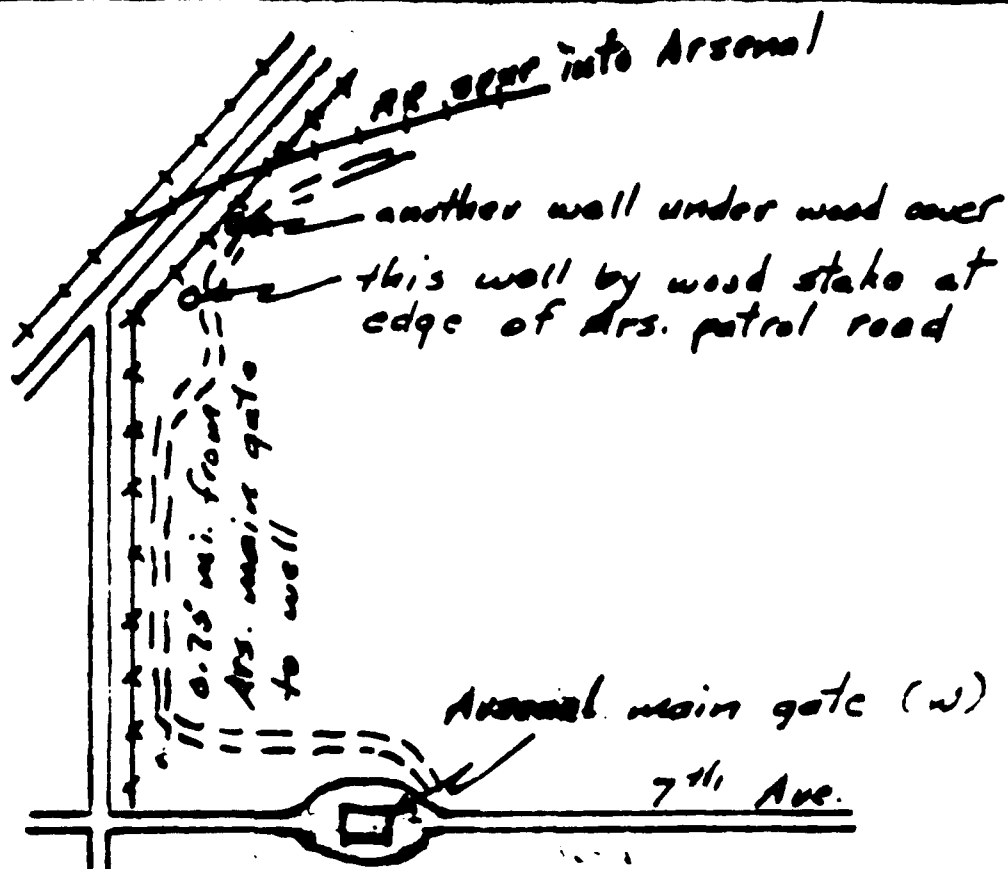 RR spur into Arsenal
another well under wood cover
this well by wood stake at
edge of Ars. patrol road
0.75 mi. from
Ars. main gate
to well
Arsenal main gate (w)
7th Ave.